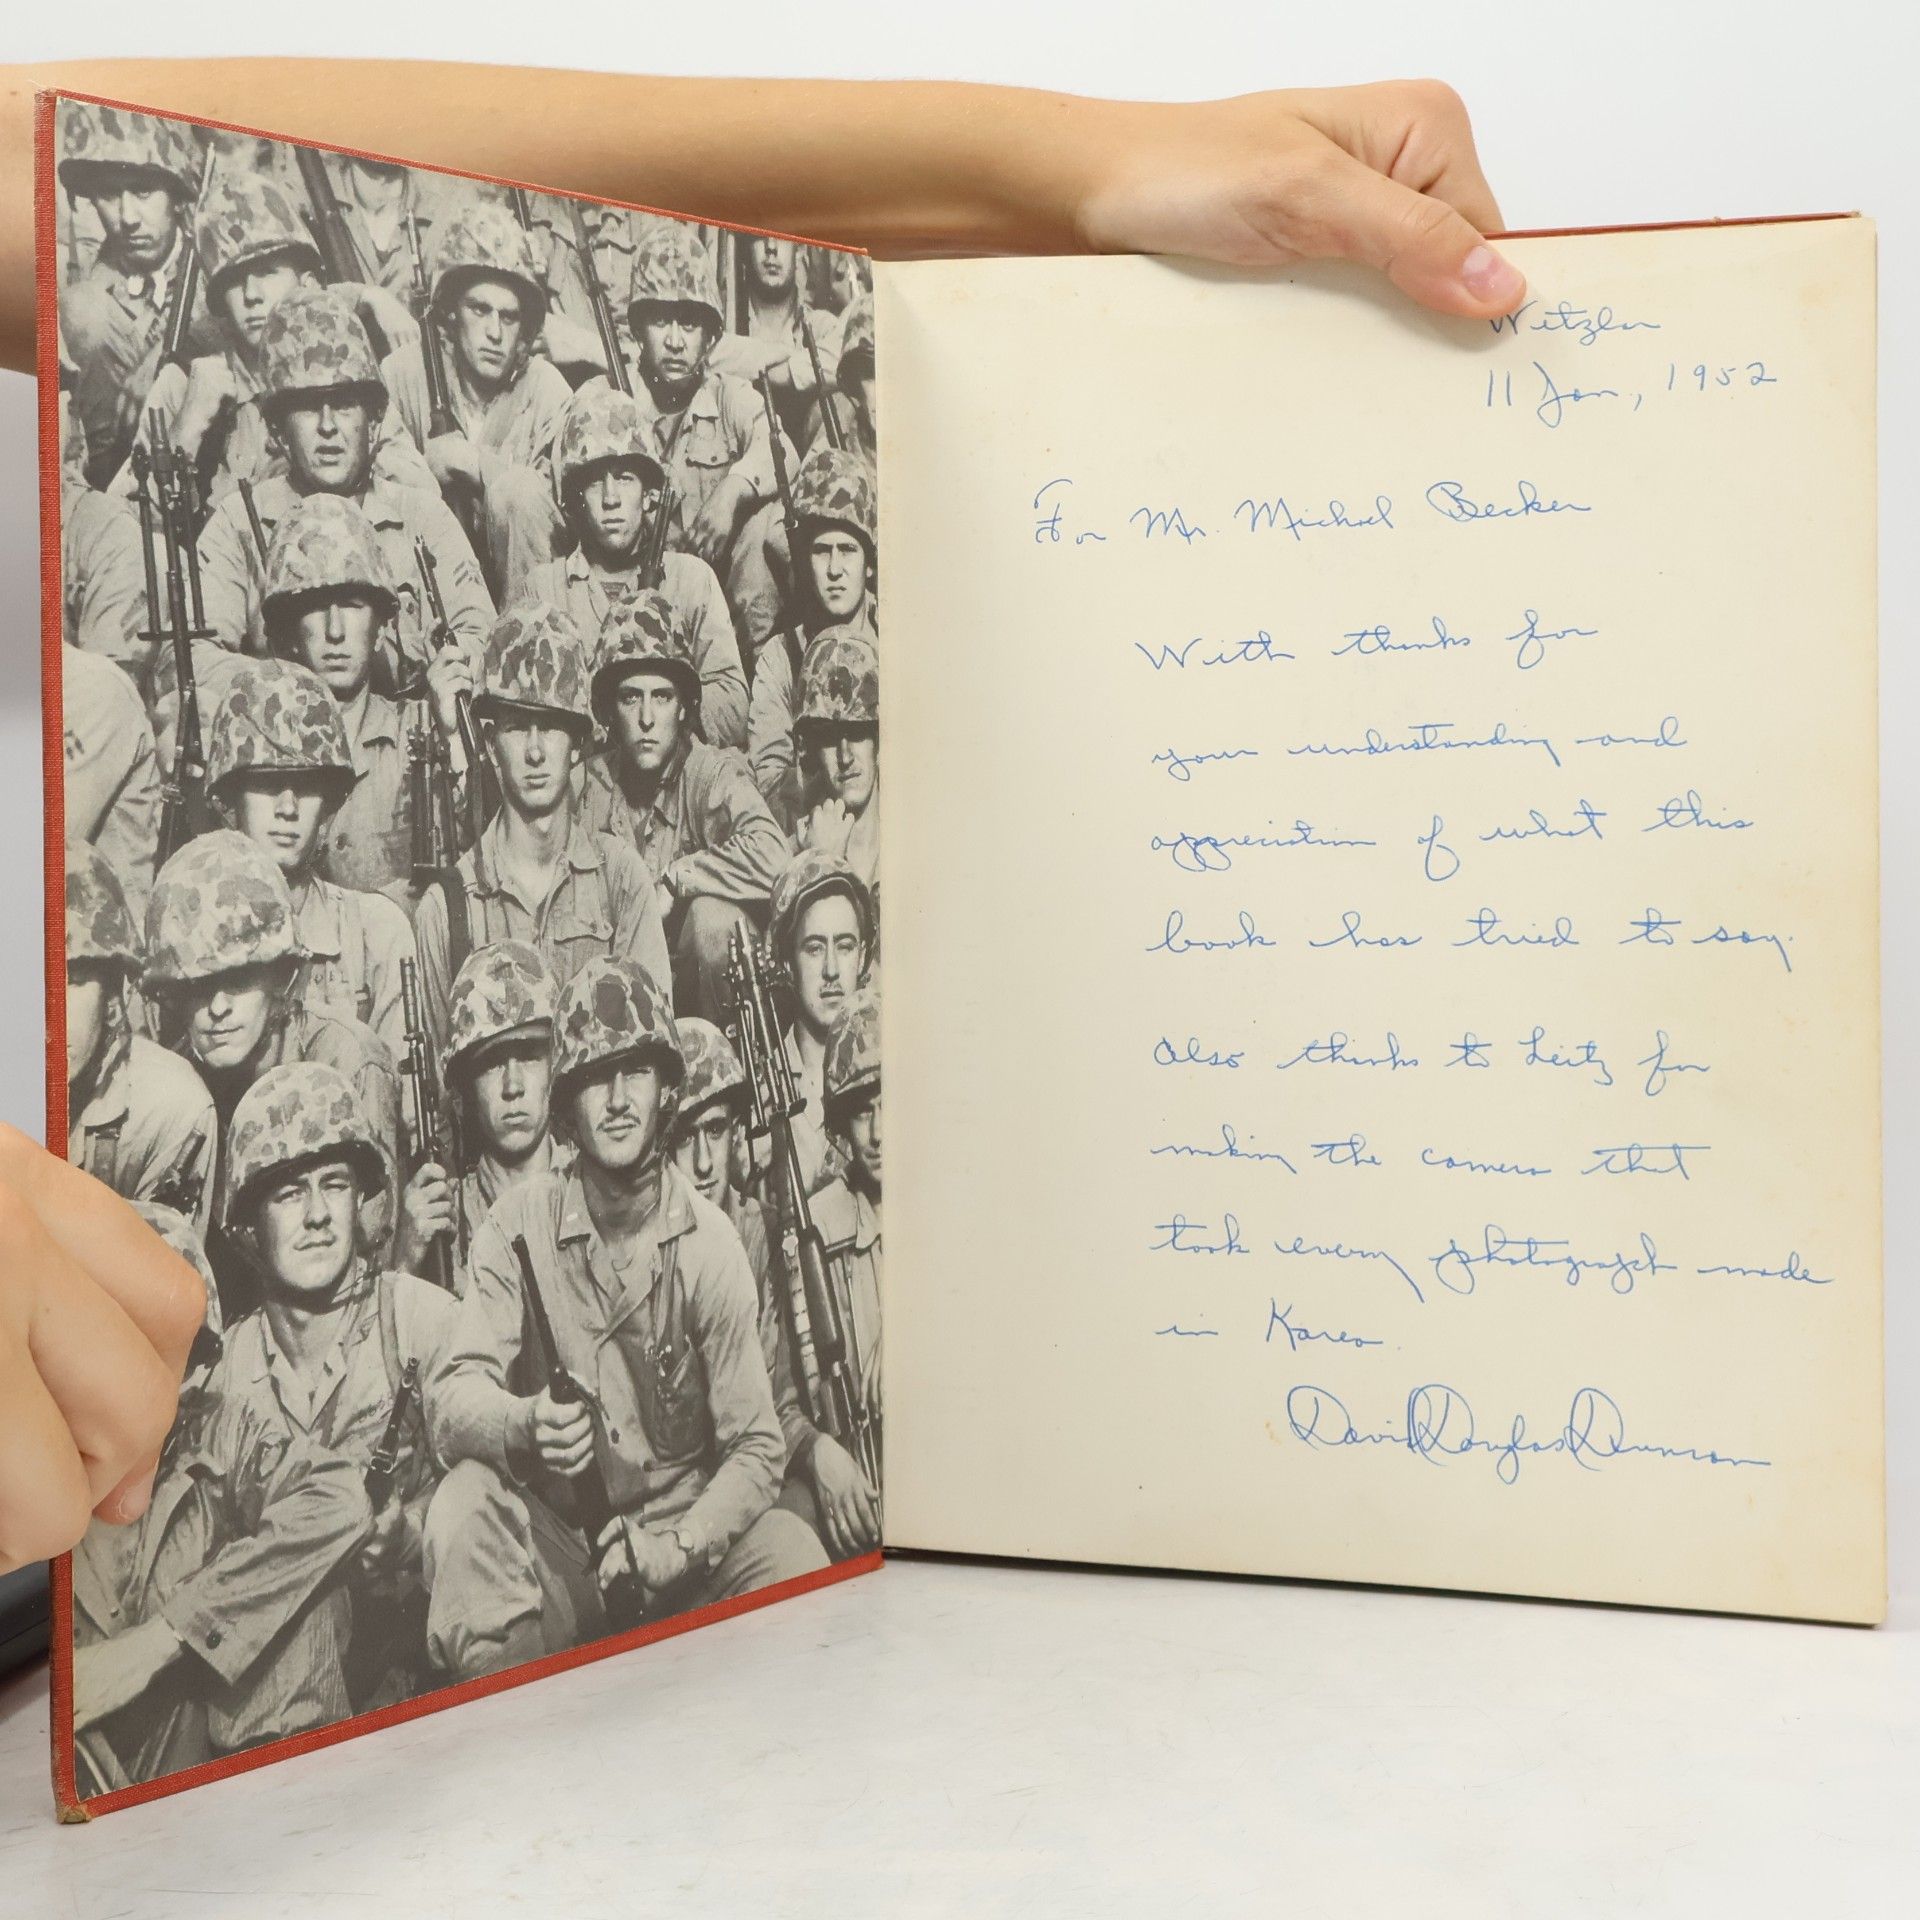 Wetzlar
11 Jan, 1952
For Mr. Michael Becker
With thanks for
your understanding and
appreciation of what this
book has tried to say.
Also thanks to Leitz for
making the camera that
took every photograph made
in Korea.
David Douglas Duncan